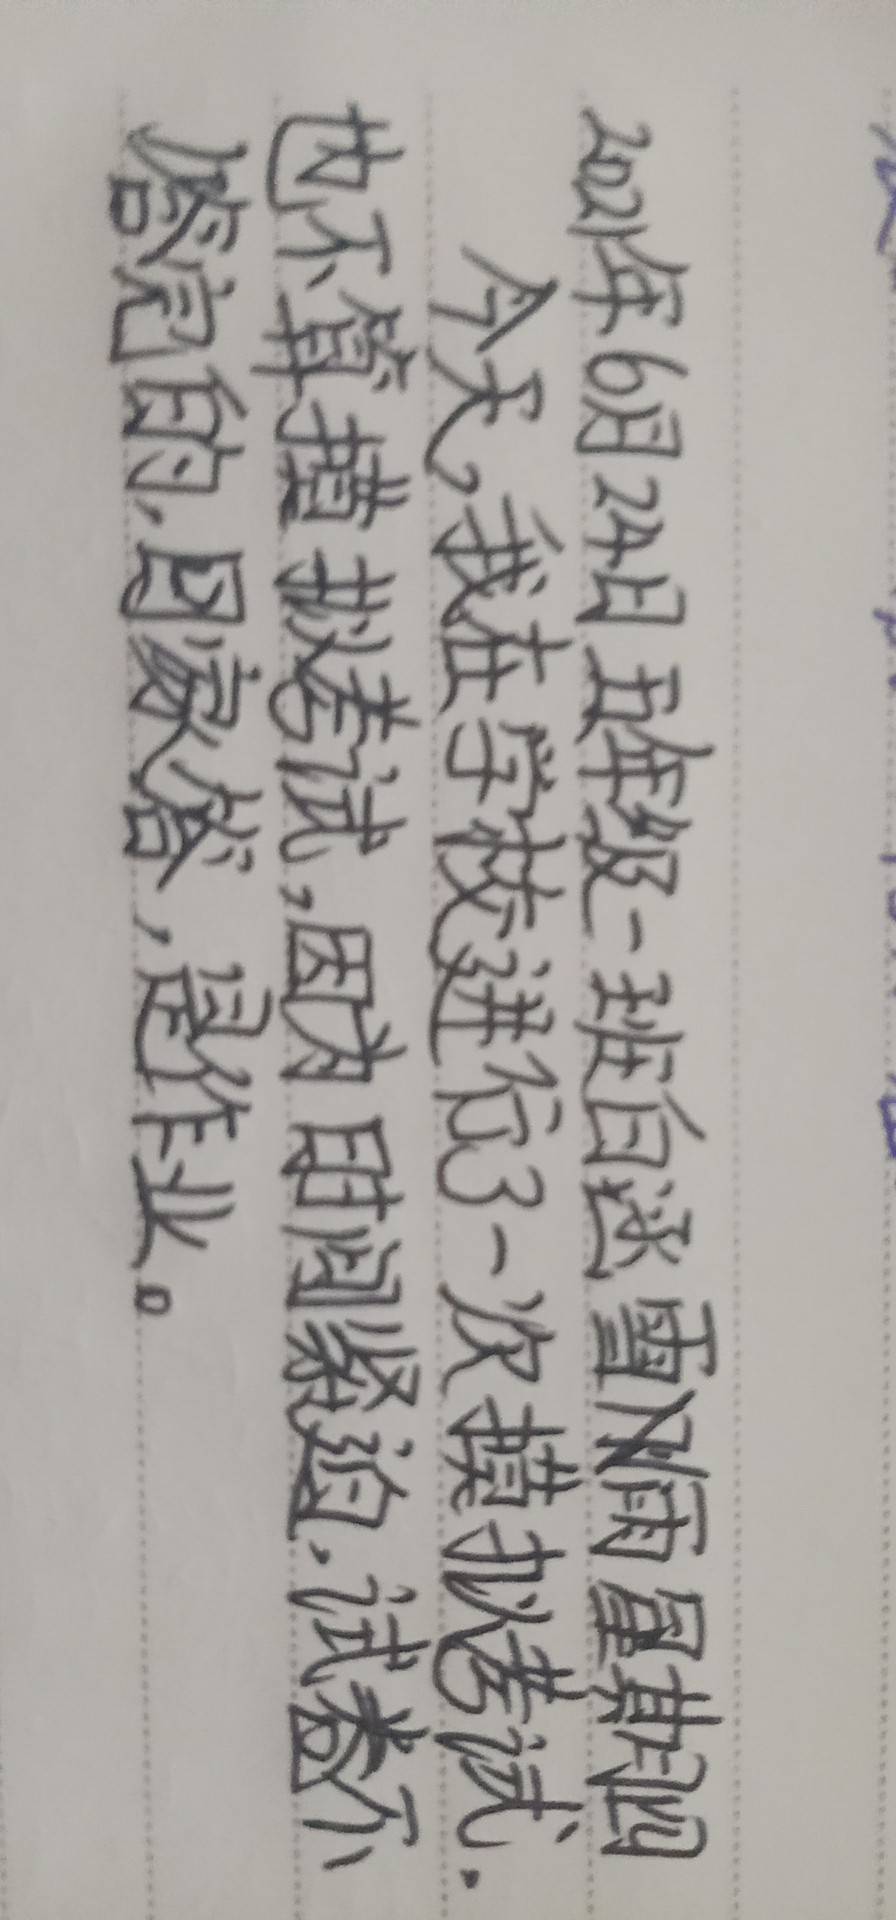 2021年6月24日 五年级一班 白冰雪 阴雨 星期四
今天，我在学校进行了一次模拟考试.
也不算模拟考试，因为时间紧迫，试卷不
答完的，回家答，是作业。